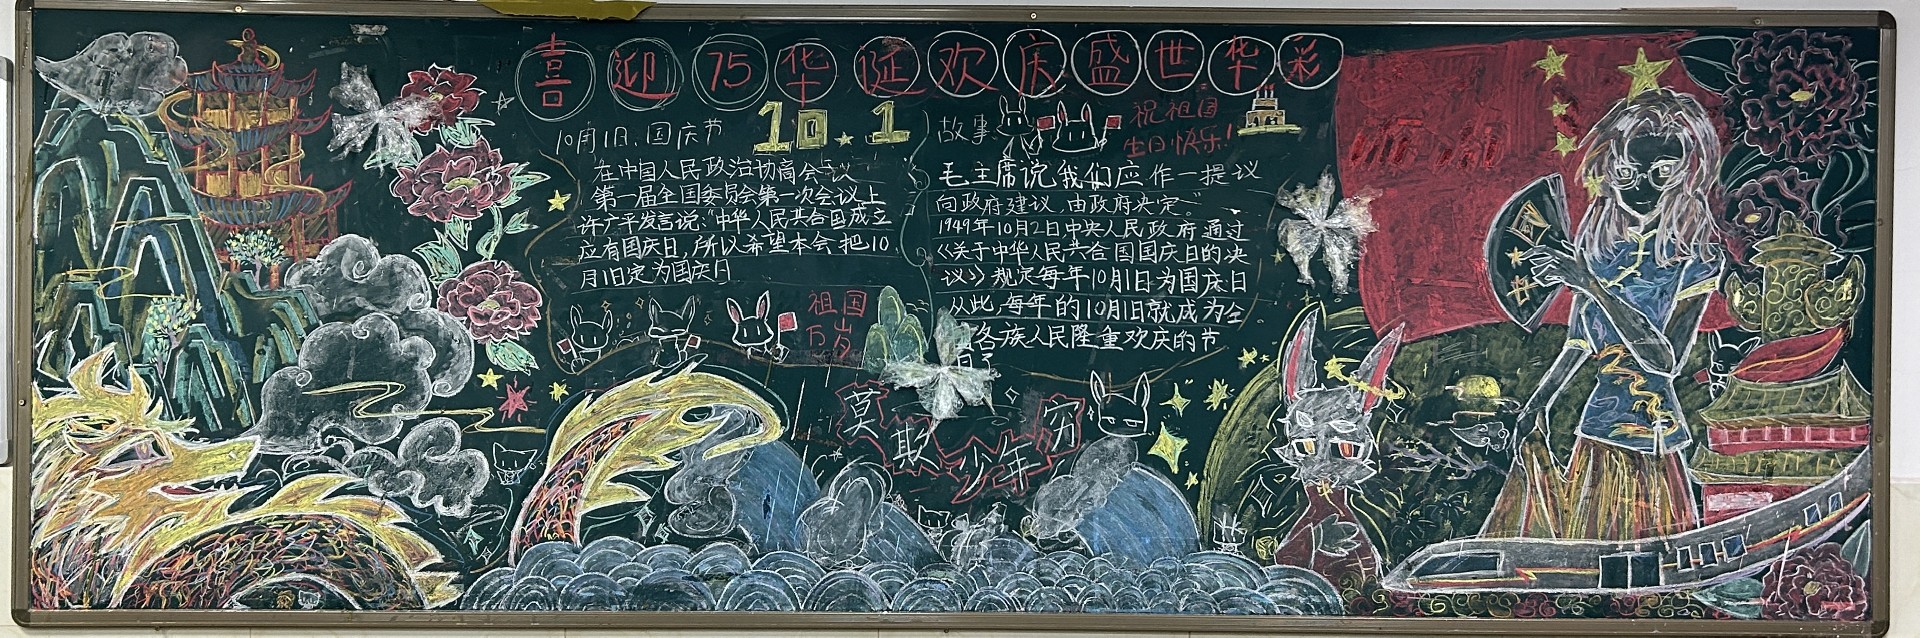 喜迎75华诞欢庆盛世华彩
10月1日、国庆节
10.1
在中国人民政治协商会议
第一届全国委员会第一次会议上
许广平发言说:“中华人民共合国成立
应有国庆日,所以希望本会把10
月1日定为国庆日
祖国
万岁
故事
祝祖国
生日快乐!
毛主席说我们应作一提议
向政府建议,由政府决定。”
1949年10月2日中央人民政府通过
《关于中华人民共合国国庆日的决
议》规定每年10月1日为国庆日
从此,每年的10月1日就成为全
各族人民隆重欢庆的节
日了
莫欺少年穷